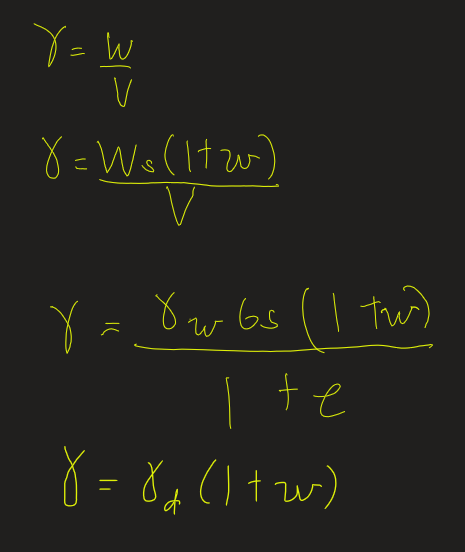 γ = W/V
γ = Ws(1+w)/V
γ = γw Gs(1+w)/1+e
γ = γd(1+w)